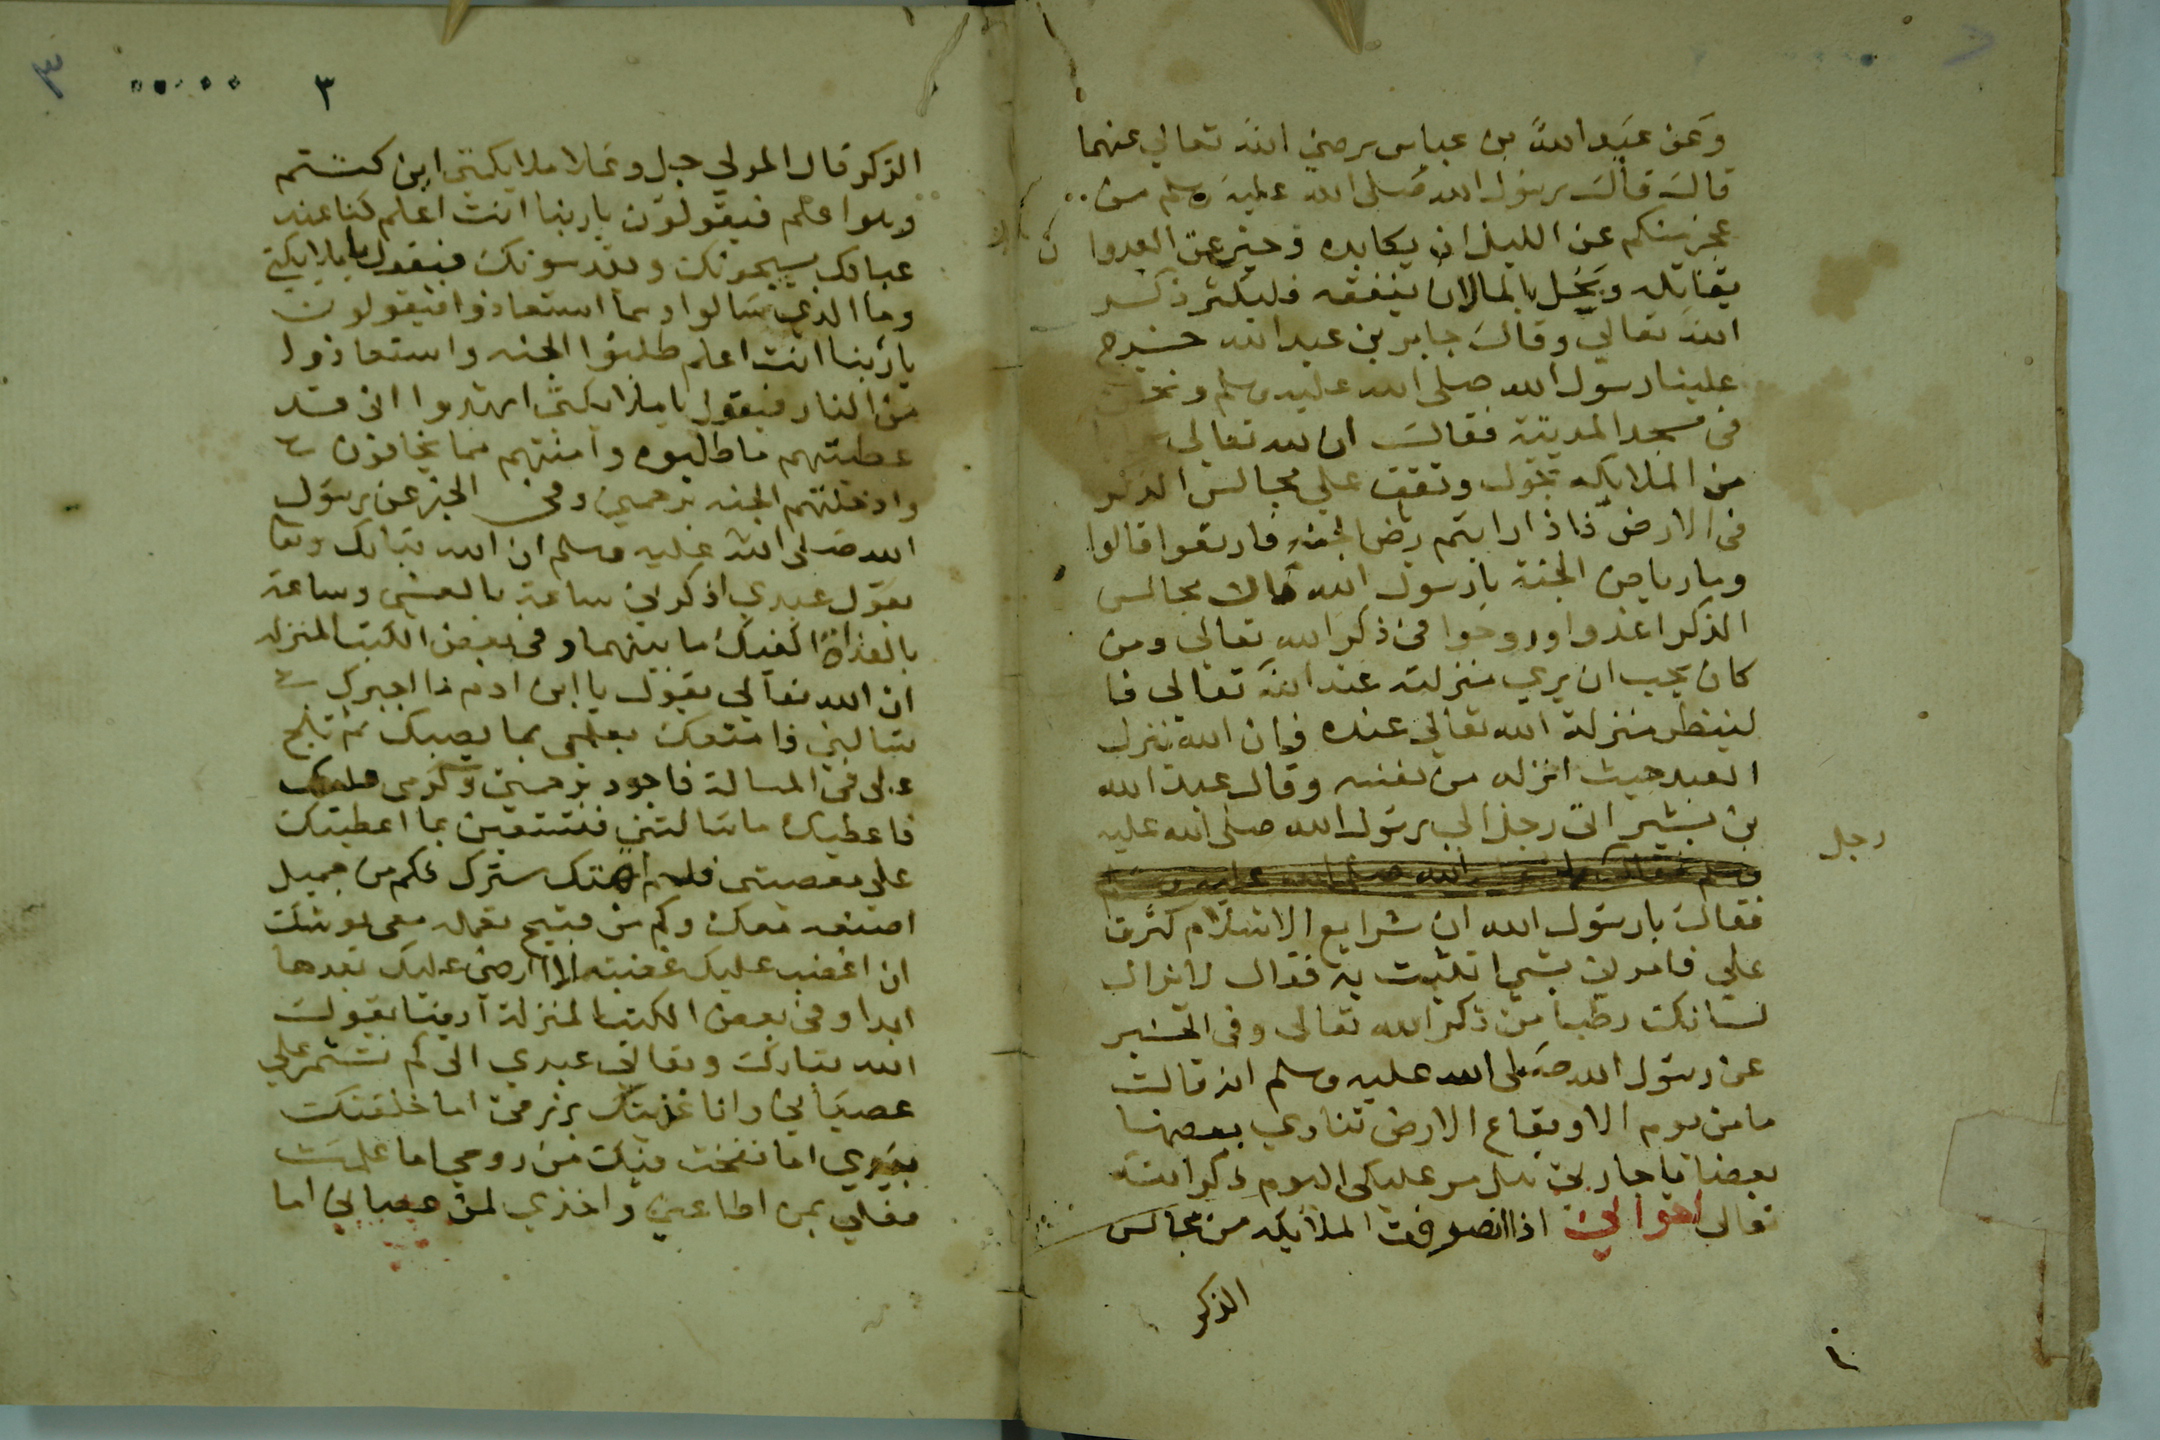 وعن عبد الله بن عباس رضي الله تعالي عنهما
قال قال رسول الله صلى الله عليه وسلم من
عجز منكم عن الليل ان يكابده وجبن عن العدوا ن
يقاتله ويخل بالمال ان ينفقه فليكثر ذكر
الله تعالي وقال جابر بن عبد الله خرج
علينا رسول الله صلى الله عليه وسلم ونحن
في مسجد المدينة فقال ان لله تعالي
من الملايكه تجول وتقف علي مجالس الذكر
في الارض فاذا رايتم رياض الجنه فارتعوا قالوا
وما رياض الجنة يا رسول الله قال مجالس
الذكر اغدوا وروحوا في ذكر الله تعالي ومن
كان يحب ان يري منزلته عند الله تعالي فا
لينظر منزلة الله تعالي عنده فان الله ينزل
العبد حيث انزله من نفسه وقال عبد الله
بن بشير اتى رجل الي رسول الله صلى الله عليه
رجل
فقال يا رسول الله ان شرايع الاسلام كثرت
علي فامرني بشي اتثبت به فقال لا يزال
لسانك رطبا من ذكر الله تعالى وفى الخبر
عن رسول الله صلى الله عليه وسلم انه قال
ما من يوم الا وبقاع الارض تنادي بعضها
بعضا يا جارتي هل مر عليكي اليوم ذكر الله
تعالى اخواني اذا انصرفت الملايكه من مجالس
الذكر
٣
٣
الذكر قال المولي جل وعلا ملايكتى اين كنتم
وهوا علم فيقولون ياربنا انت اعلم كنا عند
عبادك يسبحونك ويقدسونك فيقول يا ملايكتي
وما الذي سالوا ومما استعاذوا فيقولون
ياربنا انت اعلم طلبوا الجنه واستعاذوا
من النار فيقول يا ملايكتى اشهدوا انى قد
عطيتهم ما طلبوه وآمنتهم مما يخافون
وادخلتهم الجنه برحمتي وفى الخبر عن رسول
الله صلى الله عليه وسلم ان الله تبارك وتعا
يقول عبدي اذكرني ساعة بالعشي وساعة
بالغداة اكفيك ما بينهما وفى بعض الكتب المنزله
ان الله تعالي يقول يا ابن ادم ما اجبرك
تسالني فامنعك بعلمي بما يصبك ثم تلح
على فى المسالة فاجود برحمتي وكرمى عليك
فاعطيك ما سالتني فتستعين بما اعطيتك
على معصيتى فلم اهتك سترك فكم من جميل
اصنعه معك وكم من قبيح تعمله معى يوشك
ان اغضب عليك غضبة لا ارضى عليك بعدها
ابدا وفى بعض الكتب المنزلة ايضا يقول
الله تبارك وتعالى عبدي الى كم تستمر علي
عصياني وانا غذيتك برزقى اما خلقتك
بيدي اما نفخت فيك من روحي اما علمت
فعلي بمن اطاعني واخذي لمن عصاني اما